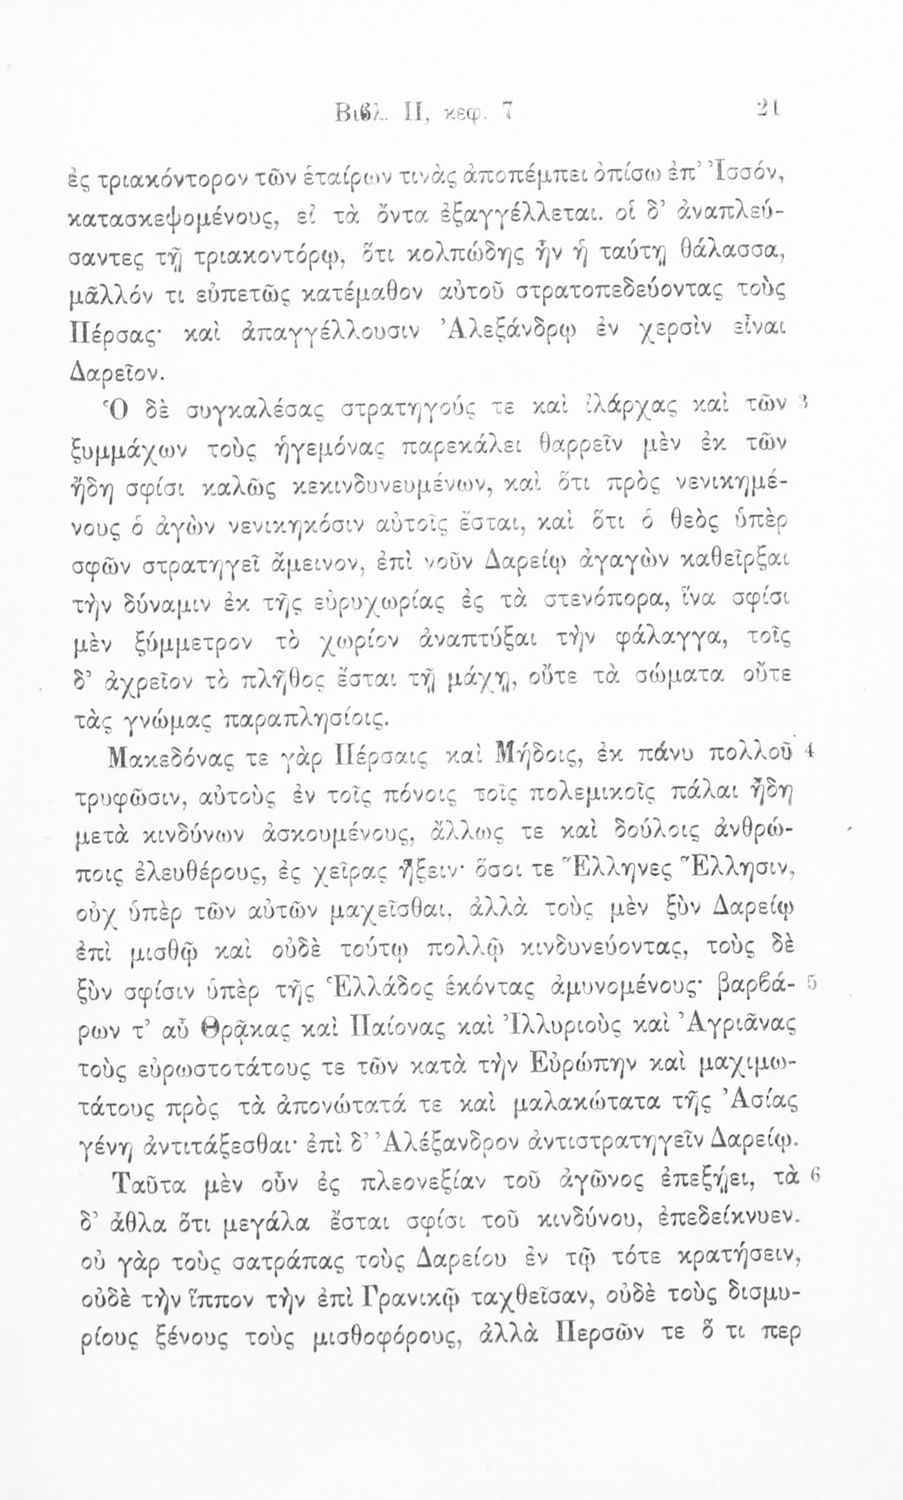 Βιβλ. II, κεφ. 7 21
ἐς τριακόντορον τῶν ἑταίρων τινὰς ἀποπέμπει ὀπίσω ἐπ’ Ἰσσόν,
κατασκεψομένους, εἰ τὰ ὄντα ἐξαγγέλλεται. οἱ δ’ ἀναπλεύ-
σαντες τῇ τριακοντόρῳ, ὅτι κολπώδης ἦν ἡ ταύτῃ θάλασσα,
μᾶλλόν τι εὐπετῶς κατέμαθον αὐτοῦ στρατοπεδεύοντας τοὺς
Πέρσας· καὶ ἀπαγγέλλουσιν Ἀλεξάνδρῳ ἐν χερσὶν εἶναι
Δαρεῖον.
Ὁ δὲ συγκαλέσας στρατηγούς τε καὶ ἰλάρχας καὶ τῶν 3
ξυμμάχων τοὺς ἡγεμόνας παρεκάλει θαρρεῖν μὲν ἐκ τῶν
ἤδη σφίσι καλῶς κεκινδυνευμένων, καὶ ὅτι πρὸς νενικημέ-
νους ὁ ἀγὼν νενικηκόσιν αὐτοῖς ἔσται, καὶ ὅτι ὁ θεὸς ὑπὲρ
σφῶν στρατηγεῖ ἄμεινον, ἐπὶ νοῦν Δαρείῳ ἀγαγὼν καθεῖρξαι
τὴν δύναμιν ἐκ τῆς εὐρυχωρίας ἐς τὰ στενόπορα, ἵνα σφίσι
μὲν ξύμμετρον τὸ χωρίον ἀναπτύξαι τὴν φάλαγγα, τοῖς
δ’ ἀχρεῖον τὸ πλῆθος ἔσται τῇ μάχῃ, οὔτε τὰ σώματα οὔτε
τὰς γνώμας παραπλησίοις.
Μακεδόνας τε γὰρ Πέρσαις καὶ Μήδοις, ἐκ πάνυ πολλοῦ 4
τρυφῶσιν, αὐτοὺς ἐν τοῖς πόνοις τοῖς πολεμικοῖς πάλαι ἤδη
μετὰ κινδύνων ἀσκουμένους, ἄλλως τε καὶ δούλοις ἀνθρώ-
ποις ἐλευθέρους, ἐς χεῖρας ἥξειν· ὅσοι τε Ἕλληνες Ἕλλησιν,
οὐχ ὑπὲρ τῶν αὐτῶν μαχεῖσθαι, ἀλλὰ τοὺς μὲν ξὺν Δαρείῳ
ἐπὶ μισθῷ καὶ οὐδὲ τούτῳ πολλῷ κινδυνεύοντας, τοὺς δὲ
ξὺν σφίσιν ὑπὲρ τῆς Ἑλλάδος ἑκόντας ἀμυνομένους· βαρβά- 5
ρων τ’ αὖ Θρᾷκας καὶ Παίονας καὶ Ἰλλυριοὺς καὶ Ἀγριᾶνας
τοὺς εὐρωστοτάτους τε τῶν κατὰ τὴν Εὐρώπην καὶ μαχιμω-
τάτους πρὸς τὰ ἀπονώτατά τε καὶ μαλακώτατα τῆς Ἀσίας
γένη ἀντιτάξεσθαι· ἐπὶ δ’ Ἀλέξανδρον ἀντιστρατηγεῖν Δαρείῳ.
Ταῦτα μὲν οὖν ἐς πλεονεξίαν τοῦ ἀγῶνος ἐπεξῄει, τὰ 6
δ’ ἆθλα ὅτι μεγάλα ἔσται σφίσι τοῦ κινδύνου, ἐπεδείκνυεν.
οὐ γὰρ τοὺς σατράπας τοὺς Δαρείου ἐν τῷ τότε κρατήσειν,
οὐδὲ τὴν ἵππον τὴν ἐπὶ Γρανικῷ ταχθεῖσαν, οὐδὲ τοὺς δισμυ-
ρίους ξένους τοὺς μισθοφόρους, ἀλλὰ Περσῶν τε ὅ τι περ